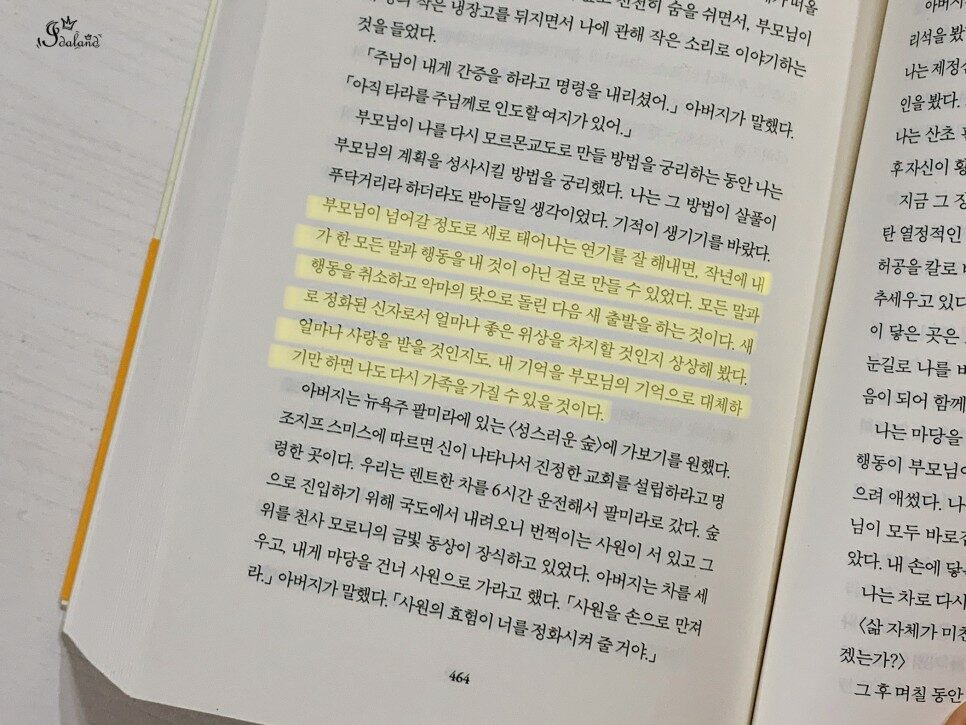 Sdaland
작은 냉장고를 뒤지면서 나에 관해 작은 소리로 이야기하는
것을 들었다.
「주님이 내게 간증을 하라고 명령을 내리셨어.」 아버지가 말했다.
「아직 타라를 주님께로 인도할 여지가 있어.」
부모님이 나를 다시 모르몬교도로 만들 방법을 궁리하는 동안 나는
부모님의 계획을 성사시킬 방법을 궁리했다. 나는 그 방법이 살풀이
푸닥거리라 하더라도 받아들일 생각이었다. 기적이 생기기를 바랐다.
부모님이 넘어갈 정도로 새로 태어나는 연기를 잘 해내면, 작년에 내
가 한 모든 말과 행동을 내 것이 아닌 걸로 만들 수 있었다. 모든 말과
행동을 취소하고 악마의 탓으로 돌린 다음 새 출발을 하는 것이다. 새
로 정화된 신자로서 얼마나 좋은 위상을 차지할 것인지 상상해 봤다.
얼마나 사랑을 받을 것인지도. 내 기억을 부모님의 기억으로 대체하
기만 하면 나도 다시 가족을 가질 수 있을 것이다.
아버지는 뉴욕주 팔미라에 있는 〈성스러운 숲〉에 가보기를 원했다.
조지프 스미스에 따르면 신이 나타나서 진정한 교회를 설립하라고 명
령한 곳이다. 우리는 렌트한 차를 6시간 운전해서 팔미라로 갔다. 숲
으로 진입하기 위해 국도에서 내려오니 번쩍이는 사원이 서 있고 그
위를 천사 모로니의 금빛 동상이 장식하고 있었다. 아버지는 차를 세
우고, 내게 마당을 건너 사원으로 가라고 했다. 「사원을 손으로 만져
라.」 아버지가 말했다. 「사원의 효험이 너를 정화시켜 줄 거야.」
464
아버지는
리석을 봤
나는 제정신
인을 봤다.
나는 산초
후 자신이 황
지금 그
탄 열정적인
허공을 칼로
추세우고 있다
이 닿은 곳은
눈길로 나를
음이 되어 함께
나는 마당을
행동이 부모님
으려 애썼다. 나
님이 모두 바로
았다. 내 손에 닿
나는 차로 다시
〈삶 자체가 미친
겠는가?〉
그 후 며칠 동안